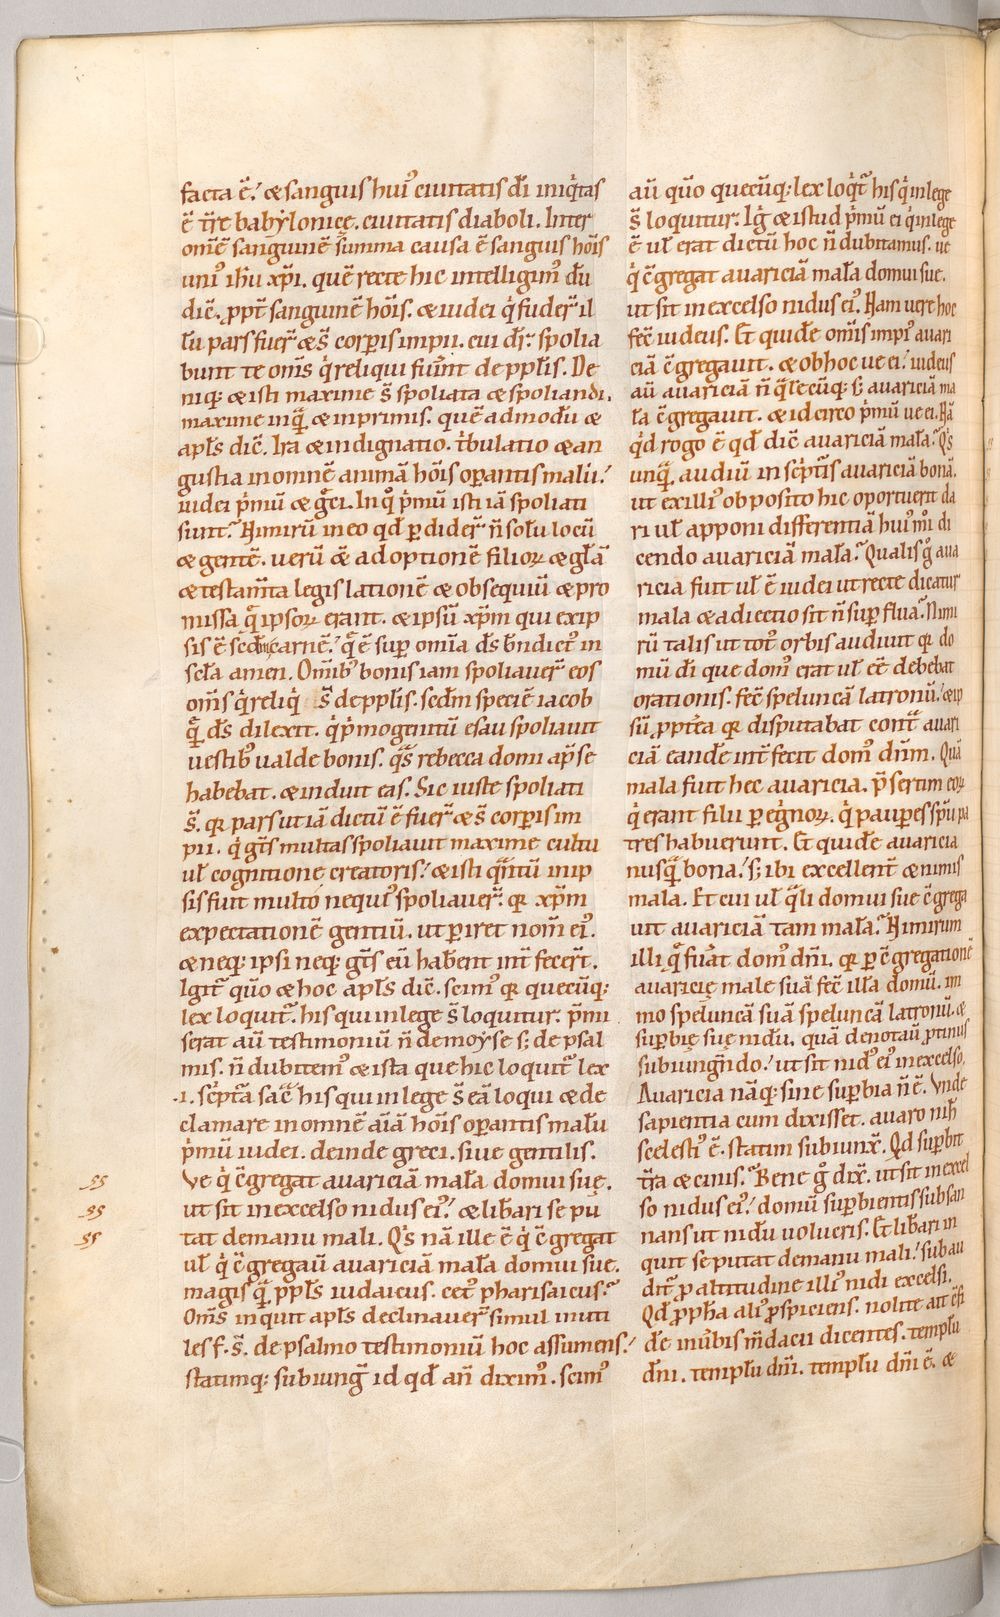 facta ē. & sanguis hui᷒ ciuitatis dī iniq̇tas
ē tr̄e babẏlonicę. ciuitatis diaboli. Inter
omē sanguinē sūmma causa ē sanguis hōis
uni᷒ ih̄u xp̄i. quē recte hic intelligim᷒ dū
dic̄. ꝓpt̄ sanguinē hōis. & iudei q̇ fuder̄ il
lū pars fuer̄ & s̄ corꝑis impii. cui dr̄: spolia
bunt te om̄s q̇ reliqui fuīnt de ppl̄is. De
niq; & isti maxime s̄ spoliata & spoliandi.
maxime inq̄ & inprimis. quē admodū &
apl̄s dic̄. Ira & indignatio. t̄bulatio & an
gustia in omnē animā hōis oꝑantis malū.
iudei ṗmū & ġci. In q̊ ṗmū isti iā spoliati
sunt? Nimirū in eo qd̄ ꝑdider̄ n̄ solū locū
& gentē. uerū & adoptionē filioꝝ & gl̄ā
& testam̄ta legislationē & obsequiū & pro
missa q̄ ipsoꝝ erant. & ipsū xp̄m qui ex ip
sis ē scd̄m carnē. q̇ ē suꝑ omīa dſ b̄ndict᷒ in
scl̄a amen. Omīb᷒ bonis iam spoliauer̄ eos
om̄s q̇ reliq̇ s̄ de ppl̄is. scd̄m speciē iacob
q̄ ds̄ dilexit. q̇ ṗmogentū esau spoliauit
uestib᷒ ualde bonis. q̄s rebecca domi ap̄ se
habebat. & induit eas. Sic iuste spoliati
s̄. qꝛ pars ut iā dictū ē fuer̄ & s̄ corꝑis im
pii. q̇ gt̄s multas spoliauit maxime cultu
ul̄ cognitione creatoris. & isti q̄ntū in ip
sis fuit multo nequi᷒ spoliauer̄. qꝛ xp̄m
expectationē gentiū. ut ꝑiret nom̄ ei᷒.
& neq; ipsi neq; gt̄s eū habent int̄fecer̄t.
Igit̄ quo & hoc apl̄s dic̄. scim᷒ qꝛ quecūq;
lex loquit̄. his qui in lege s̄ loquitur. p̄mi
serat aū testimoniū n̄ de moẏse s; de psal
mis. n̄ dubitem᷒ & ista que hic loquit̄ lex
.i. sc̄pta sac̄ his qui in lege s̄ eā loqui & de
clamare in omnē aīā hōis oꝑantis malū
ṗmū iudei. deinde greci. siue gentilis.
Ve q̇ c̄gregat auariciā malā domui suę.
ut sit in excelso nidus ei᷒. & lib̄ari se pu
tat de manu mali. Q̇s nā ille ē q̇ c̄gregat
ul̄ q̇ c̄gregaū auariciā malā domui sue.
magis q̄ ppl̄s iudaicus. cet᷒ pharisaicus?
Om̄s inquit apl̄s declinauer̄ simul inuti
les f. s̄. de psalmo testimoniū hoc assumens.
statimq; subiunḡ id qd̄ an̄ dixim᷒. scim᷒
aū quo quecūq; lex loq̇t̄ his q̇ in lege
s̄ loquitur. Iḡ & istud ṗmū ei q̇ in lege
ē ul̄ erat dictū hoc n̄ dubitamus. ue
q̇ c̄gregat auariciā malā domui sue.
ut sit in excelso nidus ei᷒. Nam uere hoc
fec̄ iudeus. Et quidē om̄is impi᷒ auari
ciā c̄gregauit. & ob hoc ue ei. iudeus
aū auariciā n̄ q̄lecūq; s; auariciā ma
lā c̄gregauit. & idcirco ṗmū ue ei. Nā
q̇d rogo ē qd̄ dic̄ auariciā malā? Q̇s
unq̄. audiū in sc̄ptis auariciā bonā.
ut ex illi᷒ obposito hic oportuerit da
ri ul̄ apponi differentiā hui᷒m̊i di
cendo auariciā malā? Qualis ḡ aua
ricia fuit ul̄ ē iudei ut recte dicatur
mala & adiectio sit n̄ suꝑflua? Nimi
rū talis ut tot᷒ orbis audiuit qꝛ do
mū dī que dom᷒ erat ul̄ eē debebat
orationis. fec̄ speluncā latronū. & ip
sū ꝓpt̄ea qꝛ disputabat cont̄ auari
ciā eandē int̄fecit dom᷒ dn̄m. Quā
mala fuit hec auaricia. p̄sertim eoꝝ
q̇ erant filii ꝑeg̊noꝝ. q̇ pauꝑes sp̄u pa
tres habuerunt. Et quidē auaricia
nusq̄ bona. s; ibi excellent̄ & nimis
mala. Et cui ul̄ q̄li domui sue c̄grega
uit auariciā tam malā? Nimirum
illi q̄ fuāt dom᷒ dn̄i. qꝛ ꝑ c̄gregationē
auaricię male suā fec̄ illā domū. im
mo speluncā suā speluncā latronū. &
suꝑbię suę nidū. quā denotaū ꝓtinus
subiungn̄do. ut sit nid᷒ ei᷒ in excelso.
Auaricia nāq; sine suꝑbia n̄ ē. Vnde
sapientia cum dixisset. auaro nih̄
scelesti᷒ ē. statim subiunx̄. Qd suꝑbit
tr̄a & cinis? Bene ḡ dix̄. ut sit in excel
so nidus ei᷒. domū suꝑbientis subsan
nans ut nidū uolucris. Et lib̄ari in
quit se putat de manu mali. subau
dit̄ ꝓ altitudine illi᷒ nidi excelsi.
Qd ꝓph̄a ali᷒ ꝓspiciens. nolite ait c̄fi
dē in ūbis m̄dacii dicentes. templū
dn̄i. templū dn̄i. templū dn̄i ē. &